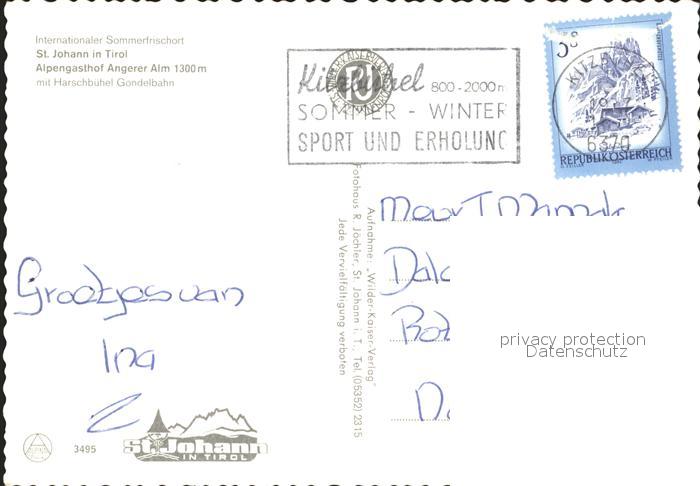 Internationaler Sommerfrischort
St. Johann in Tirol
Alpengasthof Angerer Alm 1300 m
mit Harschbühel Gondelbahn
Kitzbühel 800-2000 m
SOMMER - WINTER
SPORT UND ERHOLUNG
KITZBÜHEL
6370
REPUBLIK ÖSTERREICH
Aufnahme: „Wilder-Kaiser-Verlag"
Fotohaus R. Jöchler, St. Johann i. T., Tel. (05352) 2315
Jede Vervielfältigung verboten
Groetjes van
Ina
privacy protection
Datenschutz
3495
St. Johann
IN TIROL